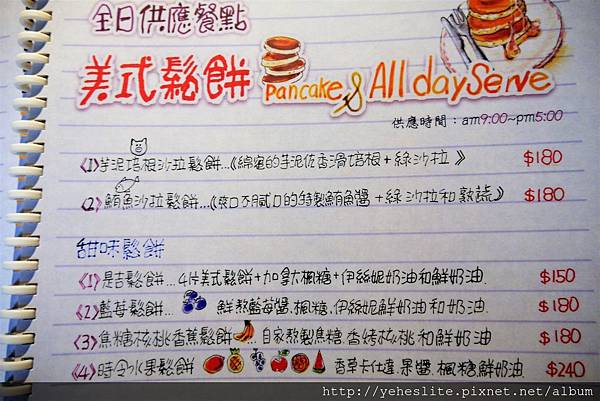 全日供應餐點
美式鬆餅 Pancake & All day Serve
供應時間：am9:00~pm5:00
<1>芋泥培根沙拉鬆餅...《綿蜜的芋泥佐香滑培根+綠沙拉》 $180
<2>鮪魚沙拉鬆餅...《爽口不膩口的特製鮪魚醬+綠沙拉和熟蔬》 $180
甜味鬆餅
<1>是吉鬆餅...4片美式鬆餅+加拿大楓糖+伊絲妮奶油和鮮奶油. $150
<2>藍莓鬆餅... 鮮熬藍莓醬.楓糖.伊絲妮鮮奶油和奶油. $180
<3>焦糖核桃香蕉鬆餅 自家熬製焦糖.香烤核桃和鮮奶油 $180
<4>時令水果鬆餅 香草卡仕達.果醬.楓糖鮮奶油 $240
http://yeheslite.pixnet.net/album